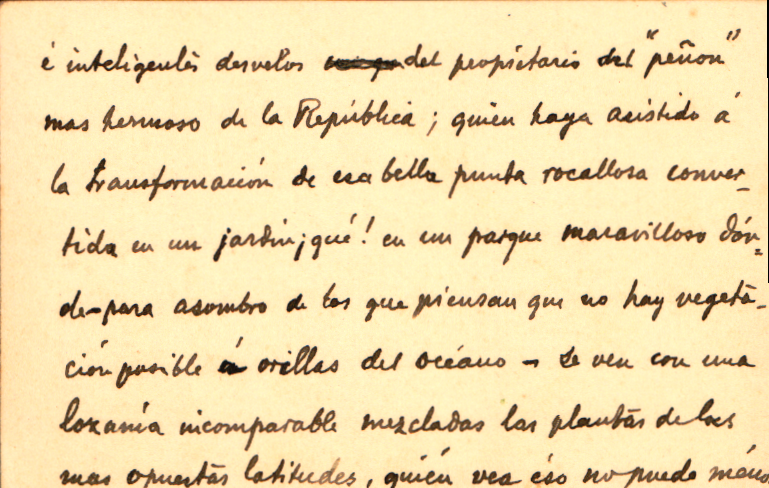 é inteligentes desvelos del propietario del "peñon"
mas hermoso de la República; quien haya asistido á
la transformación de esa bella punta rocallosa conver-
tida en un jardin; qué! en un parque maravilloso dón-
de-para asombro de los que piensan que no hay vegeta-
ción posible á orillas del océano - se ven con una
lozanía incomparable mezcladas las plantas de las
mas opuestas latitudes, quién vea éso no puede ménos